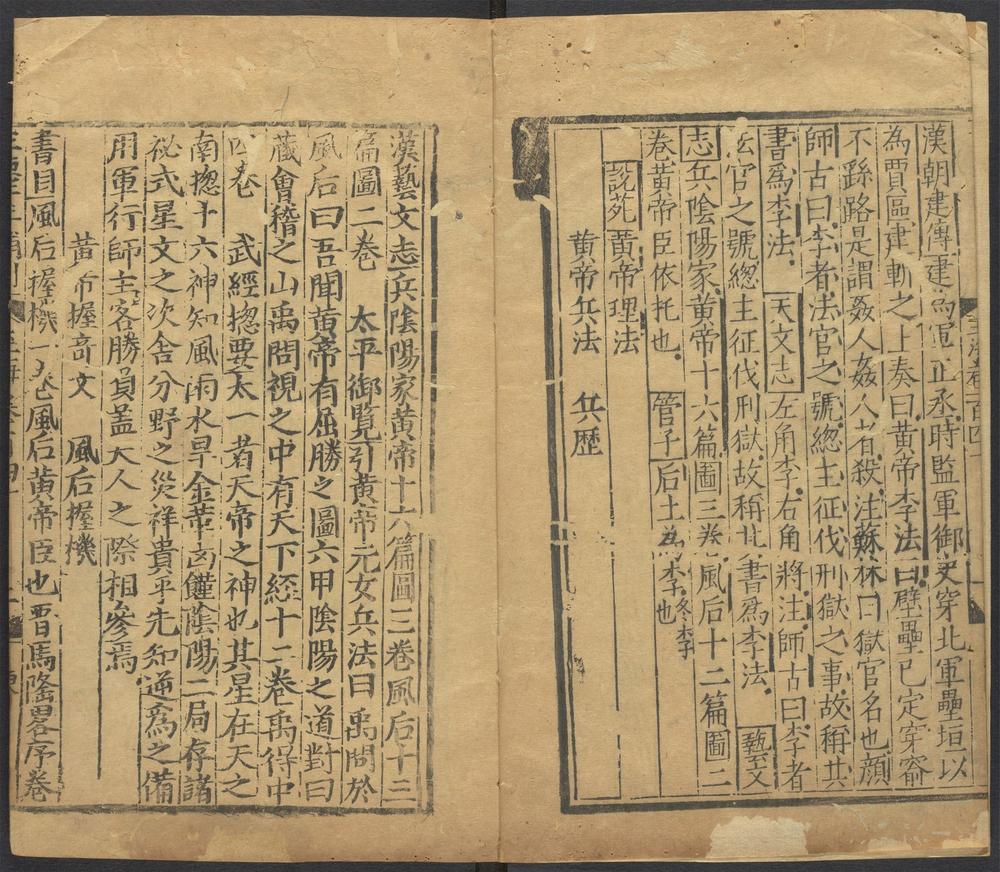 漢朝建傳建為軍正丞時監軍御史穿北軍壘垣以
為賈區建斬之上奏曰黃帝李法曰壁壘已定穿窬
不繇路是謂姦人姦人者殺注蘇林曰獄官名也顔
師古曰李者法官之號總主征伐刑獄之事故稱其
書為李法 天文志左角李右角將注師古曰李者
法官之號總主征伐刑獄故稱其書為李法 藝文
志兵陰陽家黃帝十六篇圖三卷風后十二篇圖二
卷黃帝臣依托也 管子后土為李冬李也
說苑黃帝理法
黃帝兵法 兵歷
漢藝文志兵陰陽家黃帝十六篇圖三卷風后十三
篇圖二卷 太平御覽引黃帝元女兵法曰禹問於
風后曰吾聞黃帝有屈勝之圖六甲陰陽之道對曰
藏會稽之山禹問視之中有天下經十二卷禹得中
四卷 武經揔要太一者天帝之神也其星在天之
南揔十六神知風雨水旱金革凶饉陰陽二局存諸
祕式星文之次舍分野之災祥貴乎先知逆為之備
用軍行師主客勝負盖天人之際相參焉
黃帝握奇文 風后握機
書目風后握機一卷風后黃帝臣也晋馬隆畧序卷